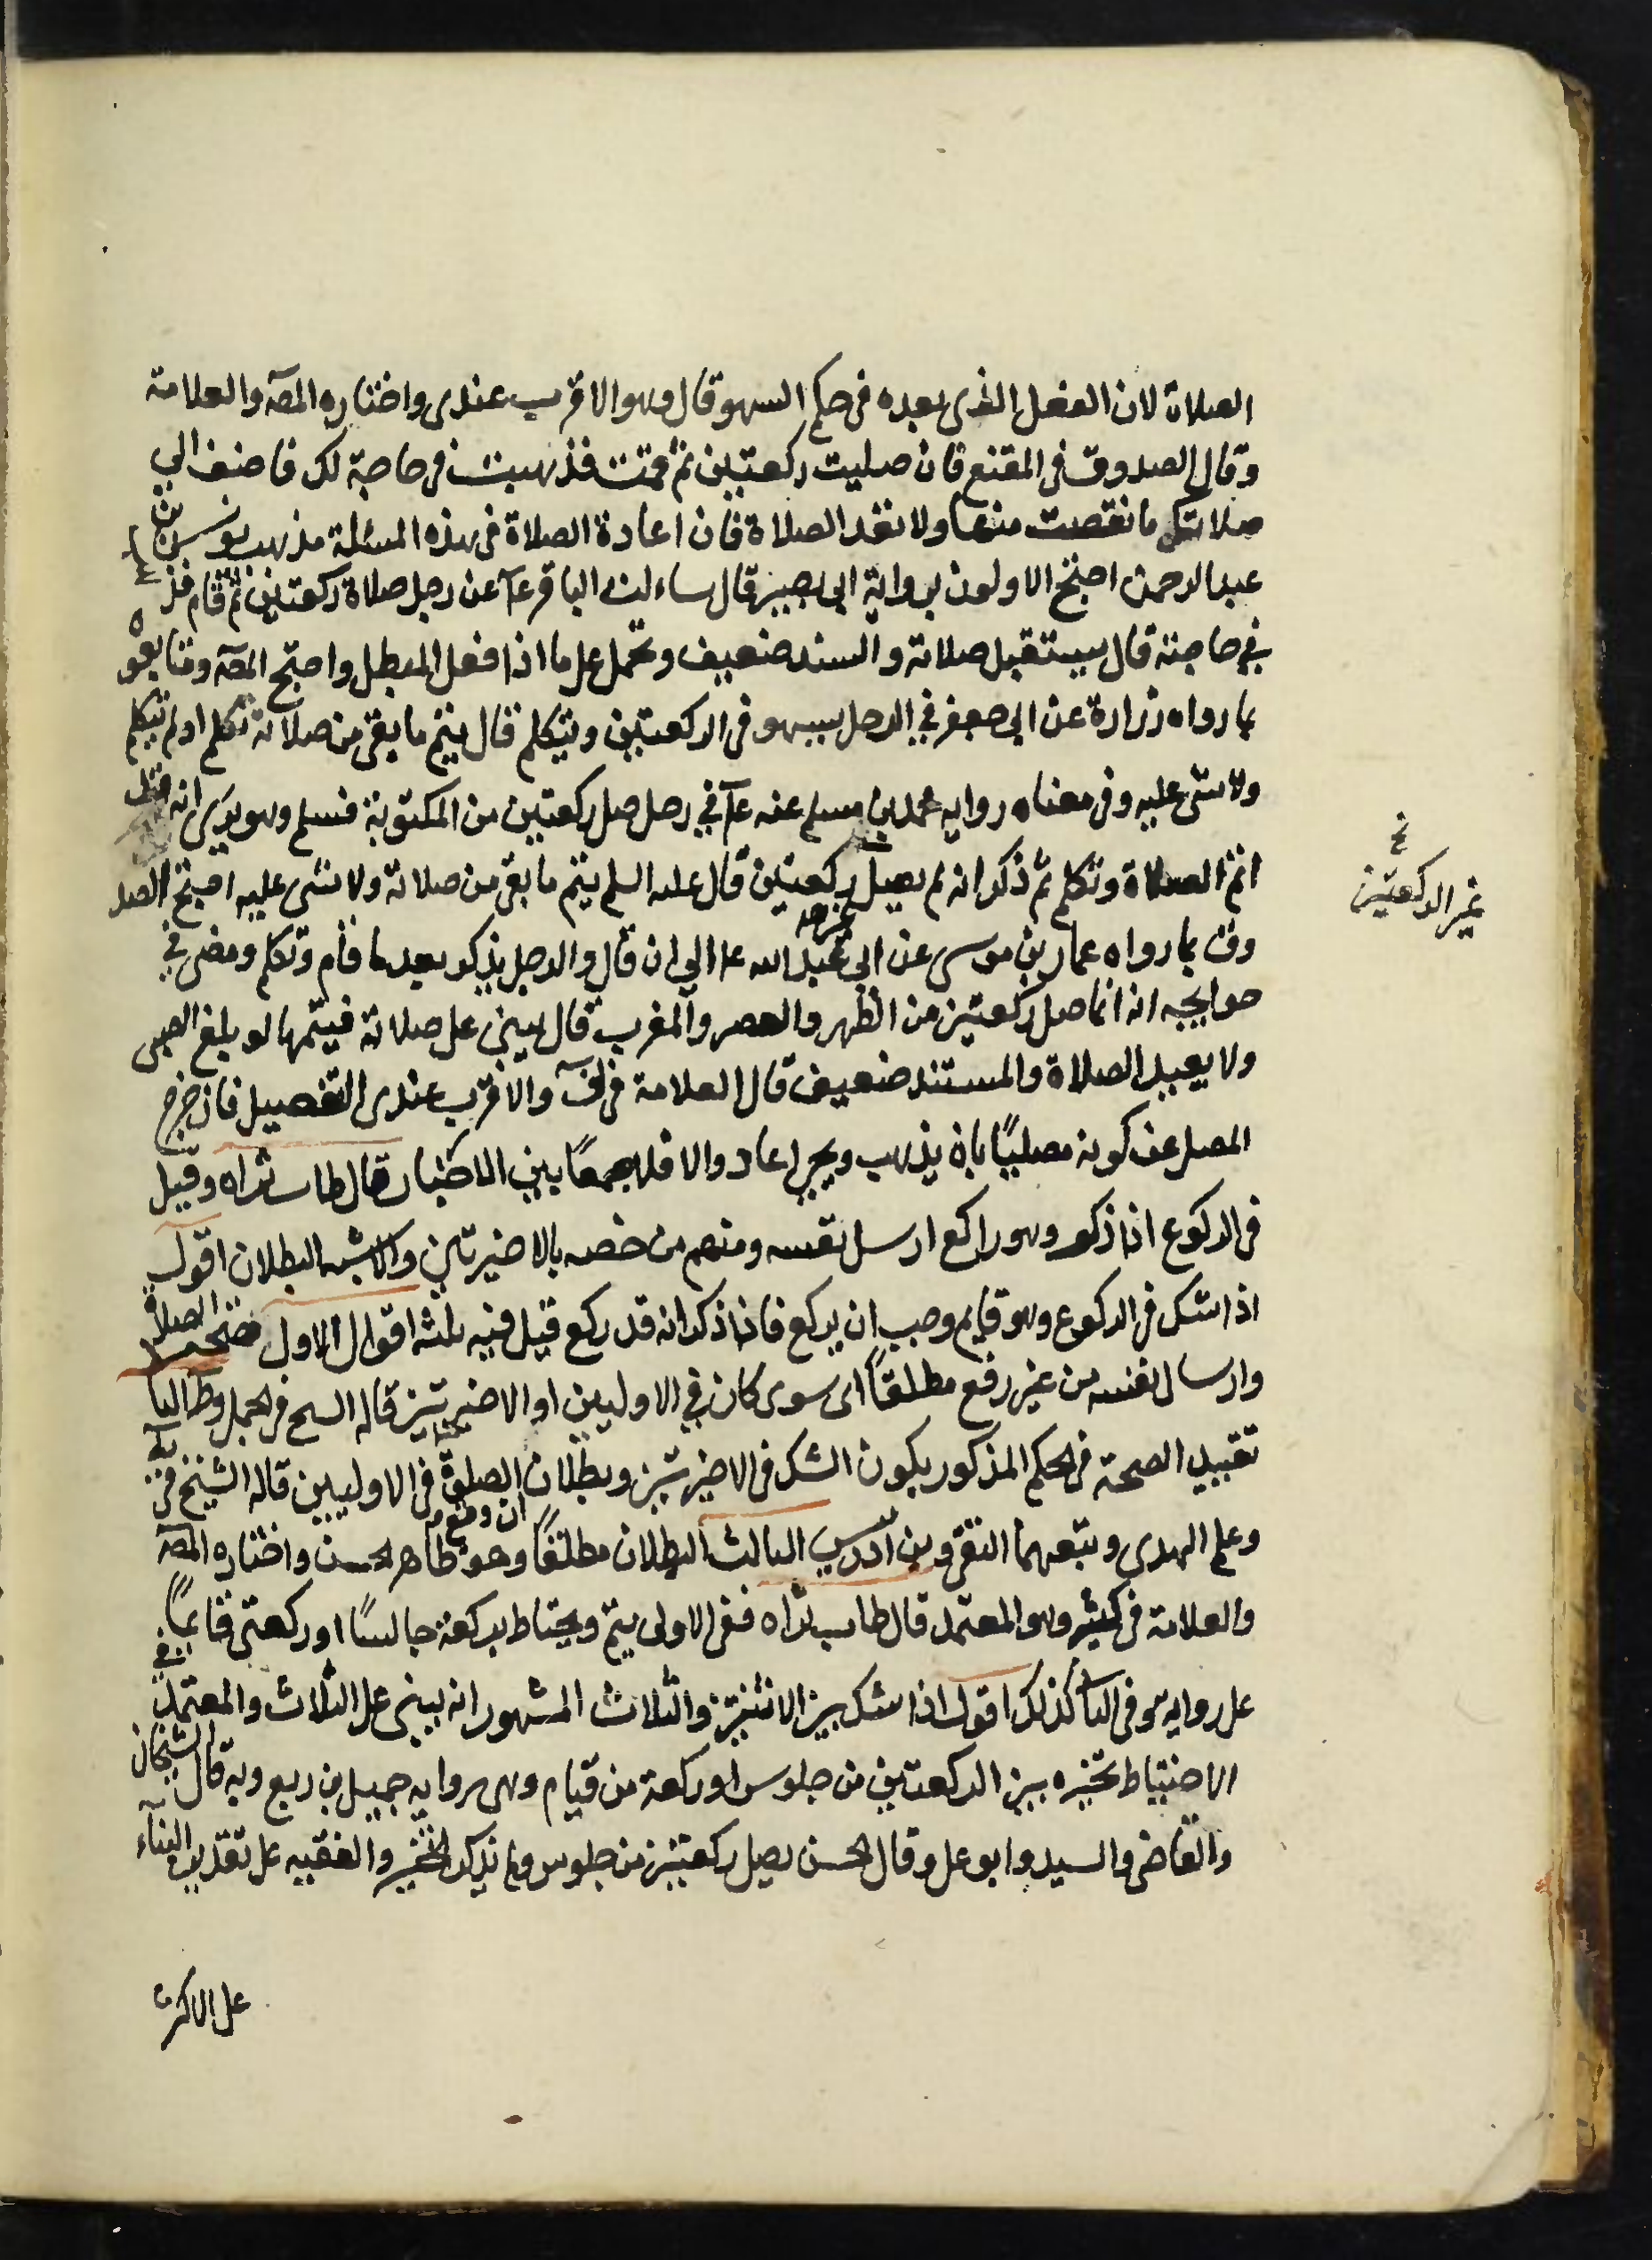 الصلاة لان الفعل الذى بعده فى حكم السهو قال وهو الاقرب عندى واختاره المصه والعلامة
وقال الصدوق فى المقنع فان صليت ركعتين ثم قمت فذهبت فى حاجة لك فاضف الي
صلاتك ما نقصت منها ولا تعد الصلاة فان اعادة الصلاة فى هذه المسئلة مذهب يونس بن
عبد الرحمن احتج الاولون برواية ابى بصير قال ساءلت الباقر عآ عن رجل صلاة ركعتين ثم قام فذهب
في حاجته قال يستقبل صلاته والسند ضعيف وتحمل على ما اذا فعل المبطل واحتج المصه ومتابعوه
بما رواه زرارة عن ابي جعفر في الرجل يسهو فى الركعتين ويتكلم قال يتم ما بقى من صلاته تكلم او لم يتكلم
ولا شى عليه وفى معناه رواية محمد بن مسلم عنه عآ في رجل صلى ركعتين من المكتوبة فسلم وهو يرى انه قد
اتم الصلاة وتكلم ثم ذكر انه لم يصل ركعتين قال عليه السلم يتم ما بقى من صلاته ولا شى عليه احتج الصد
غير الركعتين
وق بما رواه عمار بن موسى عن ابى عبد الله عا الي ان قال والرجل يذكر بعد ما قام وتكلم ومضى في
حوايجه انه انما صلى ركعتين من الظهر والعصر والمغرب قال يبني على صلاته فيتمها لو بلغ الصين
ولا يعيد الصلاة والمستند ضعيف قال العلامة في لف والاقرب عندى التفصيل فان خرج
المصلى عن كونه مصليًا بان يذهب ويجيئ اعاد والا فلا جمعًا بين الاخبار قال طاب ثراه وقيل
فى الركوع اذا ذكر وهو راكع ارسل نفسه ومنهم من خصه بالاخيرتين والاشبه البطلان اقول
اذا شك فى الركوع وهو قايم وجب ان يركع فاذا ذكر انه قد ركع قيل فيه ثلثه اقوال الاول صحت الصلاة
وارسال نفسه من غير رفع مطلقاً اى سوى كان في الاوليين او الاخيرتين قاله الشيخ فى الجمل وط الثا
تقييد الصحة فى الحكم المذكور بكون الشك فى الاخيرتين وبطلان الصلوة فى الاوليين قاله الشيخ فى يه
وعلم الهدى وتبعهما التقى وبن ادريس الثالث البطلان مطلقًا وهو ظاهر الحسن واختاره المصه
والعلامة فى كثير وهو المعتمد قال طاب ثراه ففى الاولى يتم ويحتاط بركعتين جالسًا او ركعة قائمًا
على رواية وفى الثا كذلك اقول اذا شك بين الاثنتين والثلاث المشهور انه يبنى على الثلاث والمعتمد في
الاحتياط تخيره بين الركعتين من جلوس او ركعة من قيام وهى رواية جميل بن ربيع وبه قال الشيخان
والقاضى والسيد وابو على وقال الحسن يصلى ركعتين من جلوس ولم يذكر التخيير والفقيه على تقدير البناء
على الاكثر